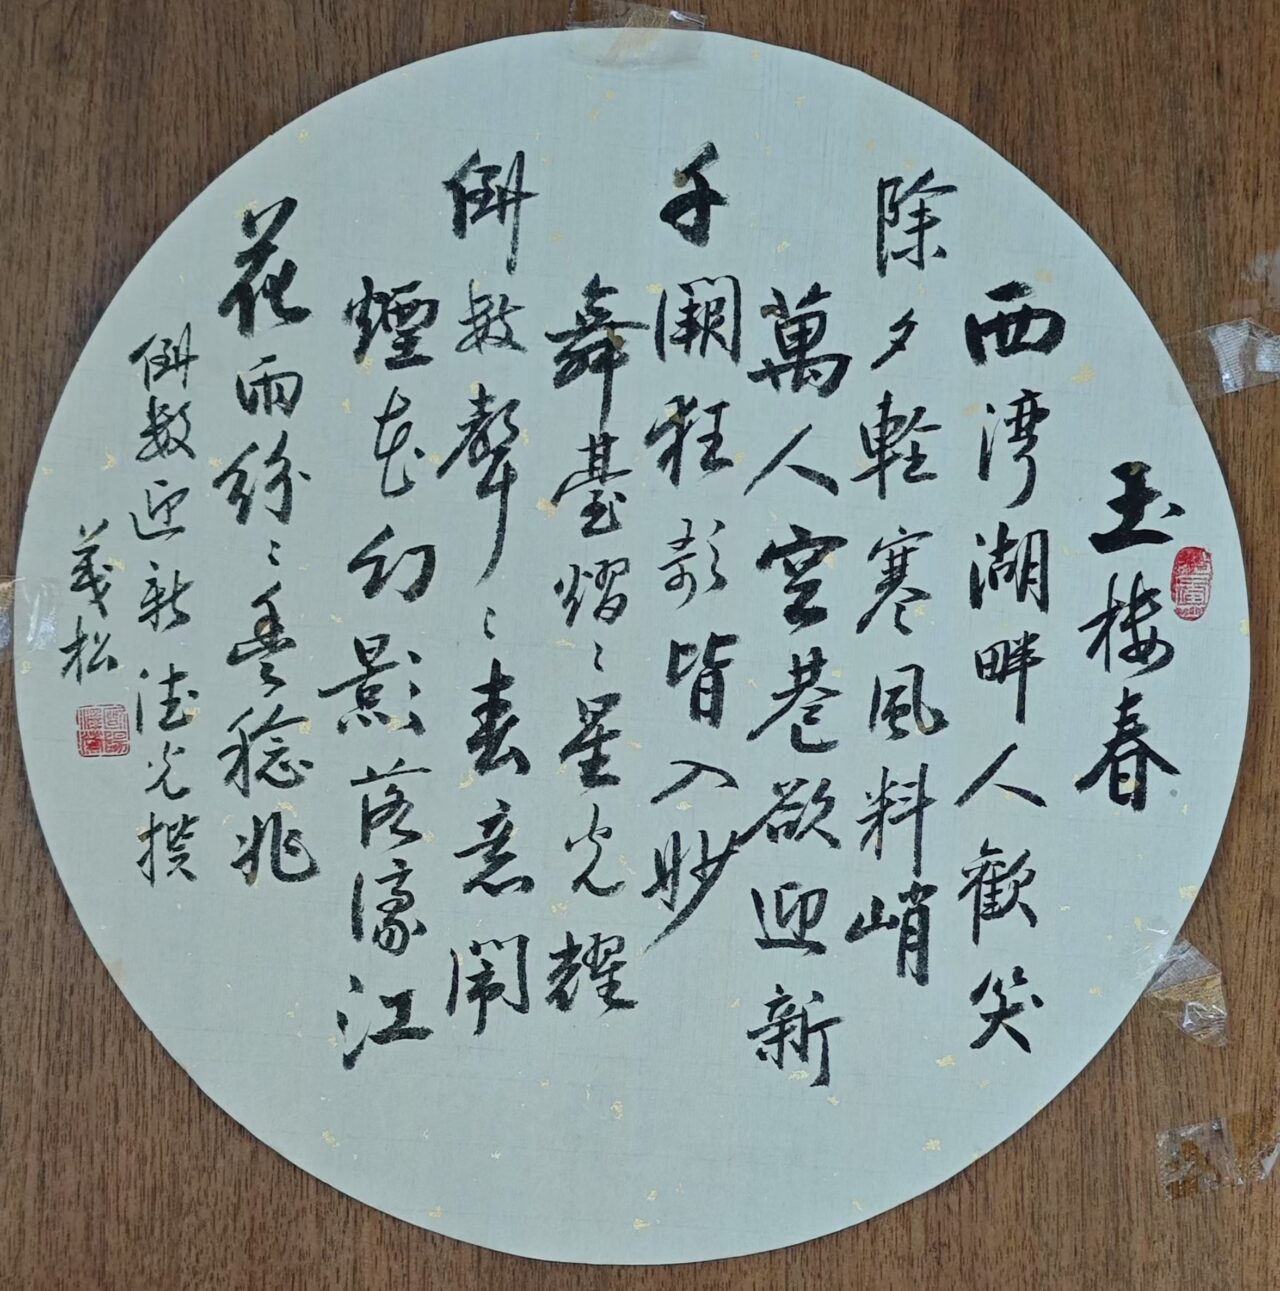 玉樓春
西湾湖畔人歡笑
除夕輕寒風料峭
萬人空巷欲迎新
千闕狂歌皆入妙
舞臺熠〻星光耀
倒數聲〻春意鬧
煙花幻影落濠江
花雨紛〻豊稔兆
倒數迎新 德光撰
義松